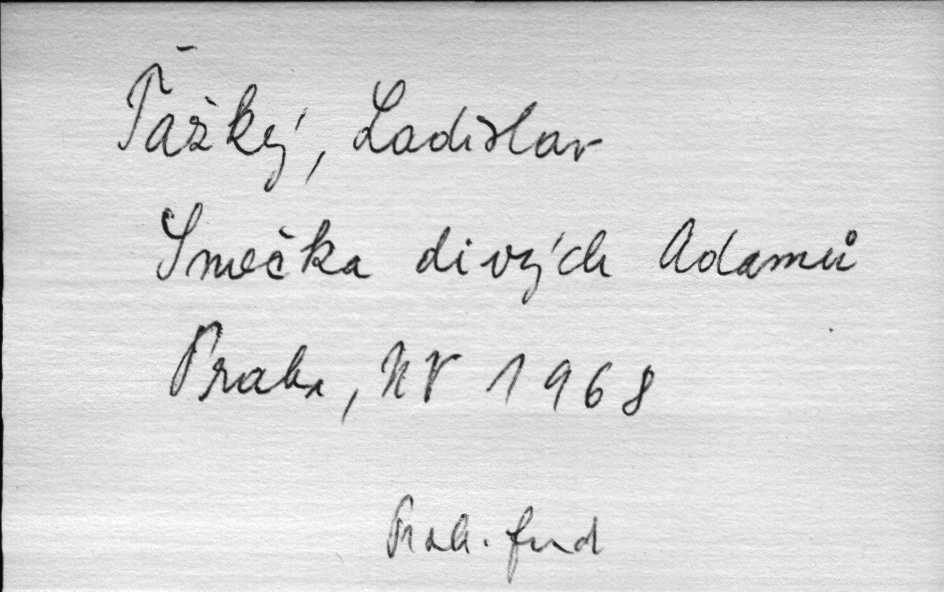 Ťažký, Ladislav
Smečka divých Adamů
Praha, NV 1968